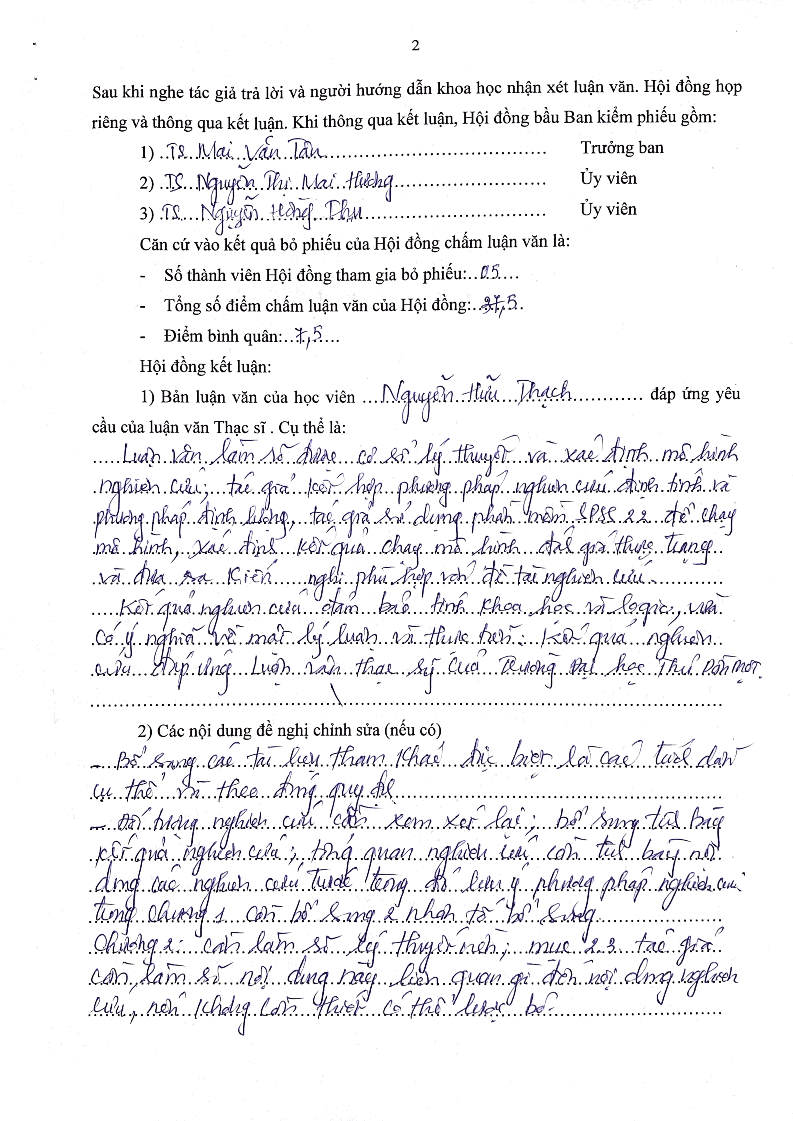 2
Sau khi nghe tác giả trả lời và người hướng dẫn khoa học nhận xét luận văn. Hội đồng họp
riêng và thông qua kết luận. Khi thông qua kết luận, Hội đồng bầu Ban kiểm phiếu gồm:
1) ..TS. Mai Văn Tân.......... Trưởng ban
2) ..TS. Nguyễn Thị Mai Hương.......... Ủy viên
3) ..TS. Nguyễn Hồng Thu.......... Ủy viên
Căn cứ vào kết quả bỏ phiếu của Hội đồng chấm luận văn là:
- Số thành viên Hội đồng tham gia bỏ phiếu:..05....
- Tổng số điểm chấm luận văn của Hội đồng:..37,5..
- Điểm bình quân:..7,5....
Hội đồng kết luận:
1) Bản luận văn của học viên ....Nguyễn Hữu Thạch.......... đáp ứng yêu
cầu của luận văn Thạc sĩ . Cụ thể là:
.....Luận văn làm rõ được cơ sở lý thuyết và xác định mô hình
nghiên cứu; tác giả kết hợp phương pháp nghiên cứu định tính và
phương pháp định lượng, tác giả sử dụng phần mềm SPSS 22 để chạy
mô hình, xác định kết quả chạy mô hình đánh giá thực trạng
và đưa ra kiến nghị phù hợp với đề tài nghiên cứu.
.....Kết quả nghiên cứu đảm bảo tính khoa học và logic, vừa
có ý nghĩa về mặt lý luận và thực tiễn. Kết quả nghiên
cứu đáp ứng Luận văn thạc sỹ của Trường Đại học Thủ Dầu Một.
2) Các nội dung đề nghị chỉnh sửa (nếu có)
- Bổ sung các tài liệu tham khảo đặc biệt là các trích dẫn
cụ thể và theo đúng quy định
- Đối tượng nghiên cứu cần xem xét lại; bổ sung trình bày
kết quả nghiên cứu; tổng quan nghiên cứu cần trình bày nội
dung các nghiên cứu trước trong đó lưu ý phương pháp nghiên cứu
trong chương 1 cần bổ sung 2 nhân tố bổ sung
Chương 2: cần làm rõ lý thuyết nền; mục 2.3 tác giả
cần làm rõ nội dung này liên quan gì đến nội dung nghiên
cứu, nếu không cần thiết có thể lược bỏ.